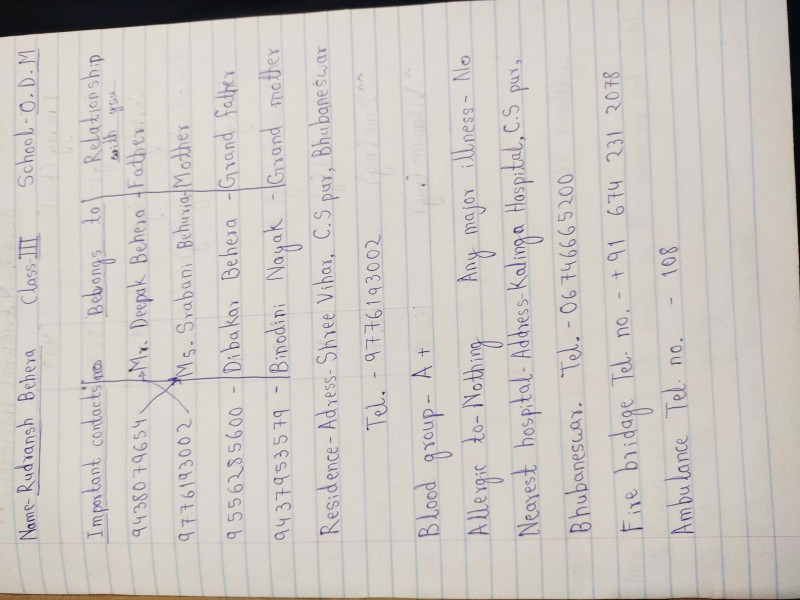 Name- Rudransh Behera Class-III School-O.D.M
Important contacts no Belongs to Relationship with you
9438079654 Mr. Deepak Behera - Father
9776193002 Ms. Srabani Behuria - Mother
9556285600 - Dibakar Behera - Grand father
9437953579 - Binodini Nayak - Grand mother
Residence - Adress- Shree Vihar, C.S pur, Bhubaneswar
Tel. - 9776193002
Blood group- A+
Allergic to- Nothing Any major illness- No
Nearest hospital- Address-Kalinga Hospital, C.S pur,
Bhubaneswar. Tel. - 06746665200
Fire bridage Tel. no. - +91 674 231 2078
Ambulance Tel. no. - 108